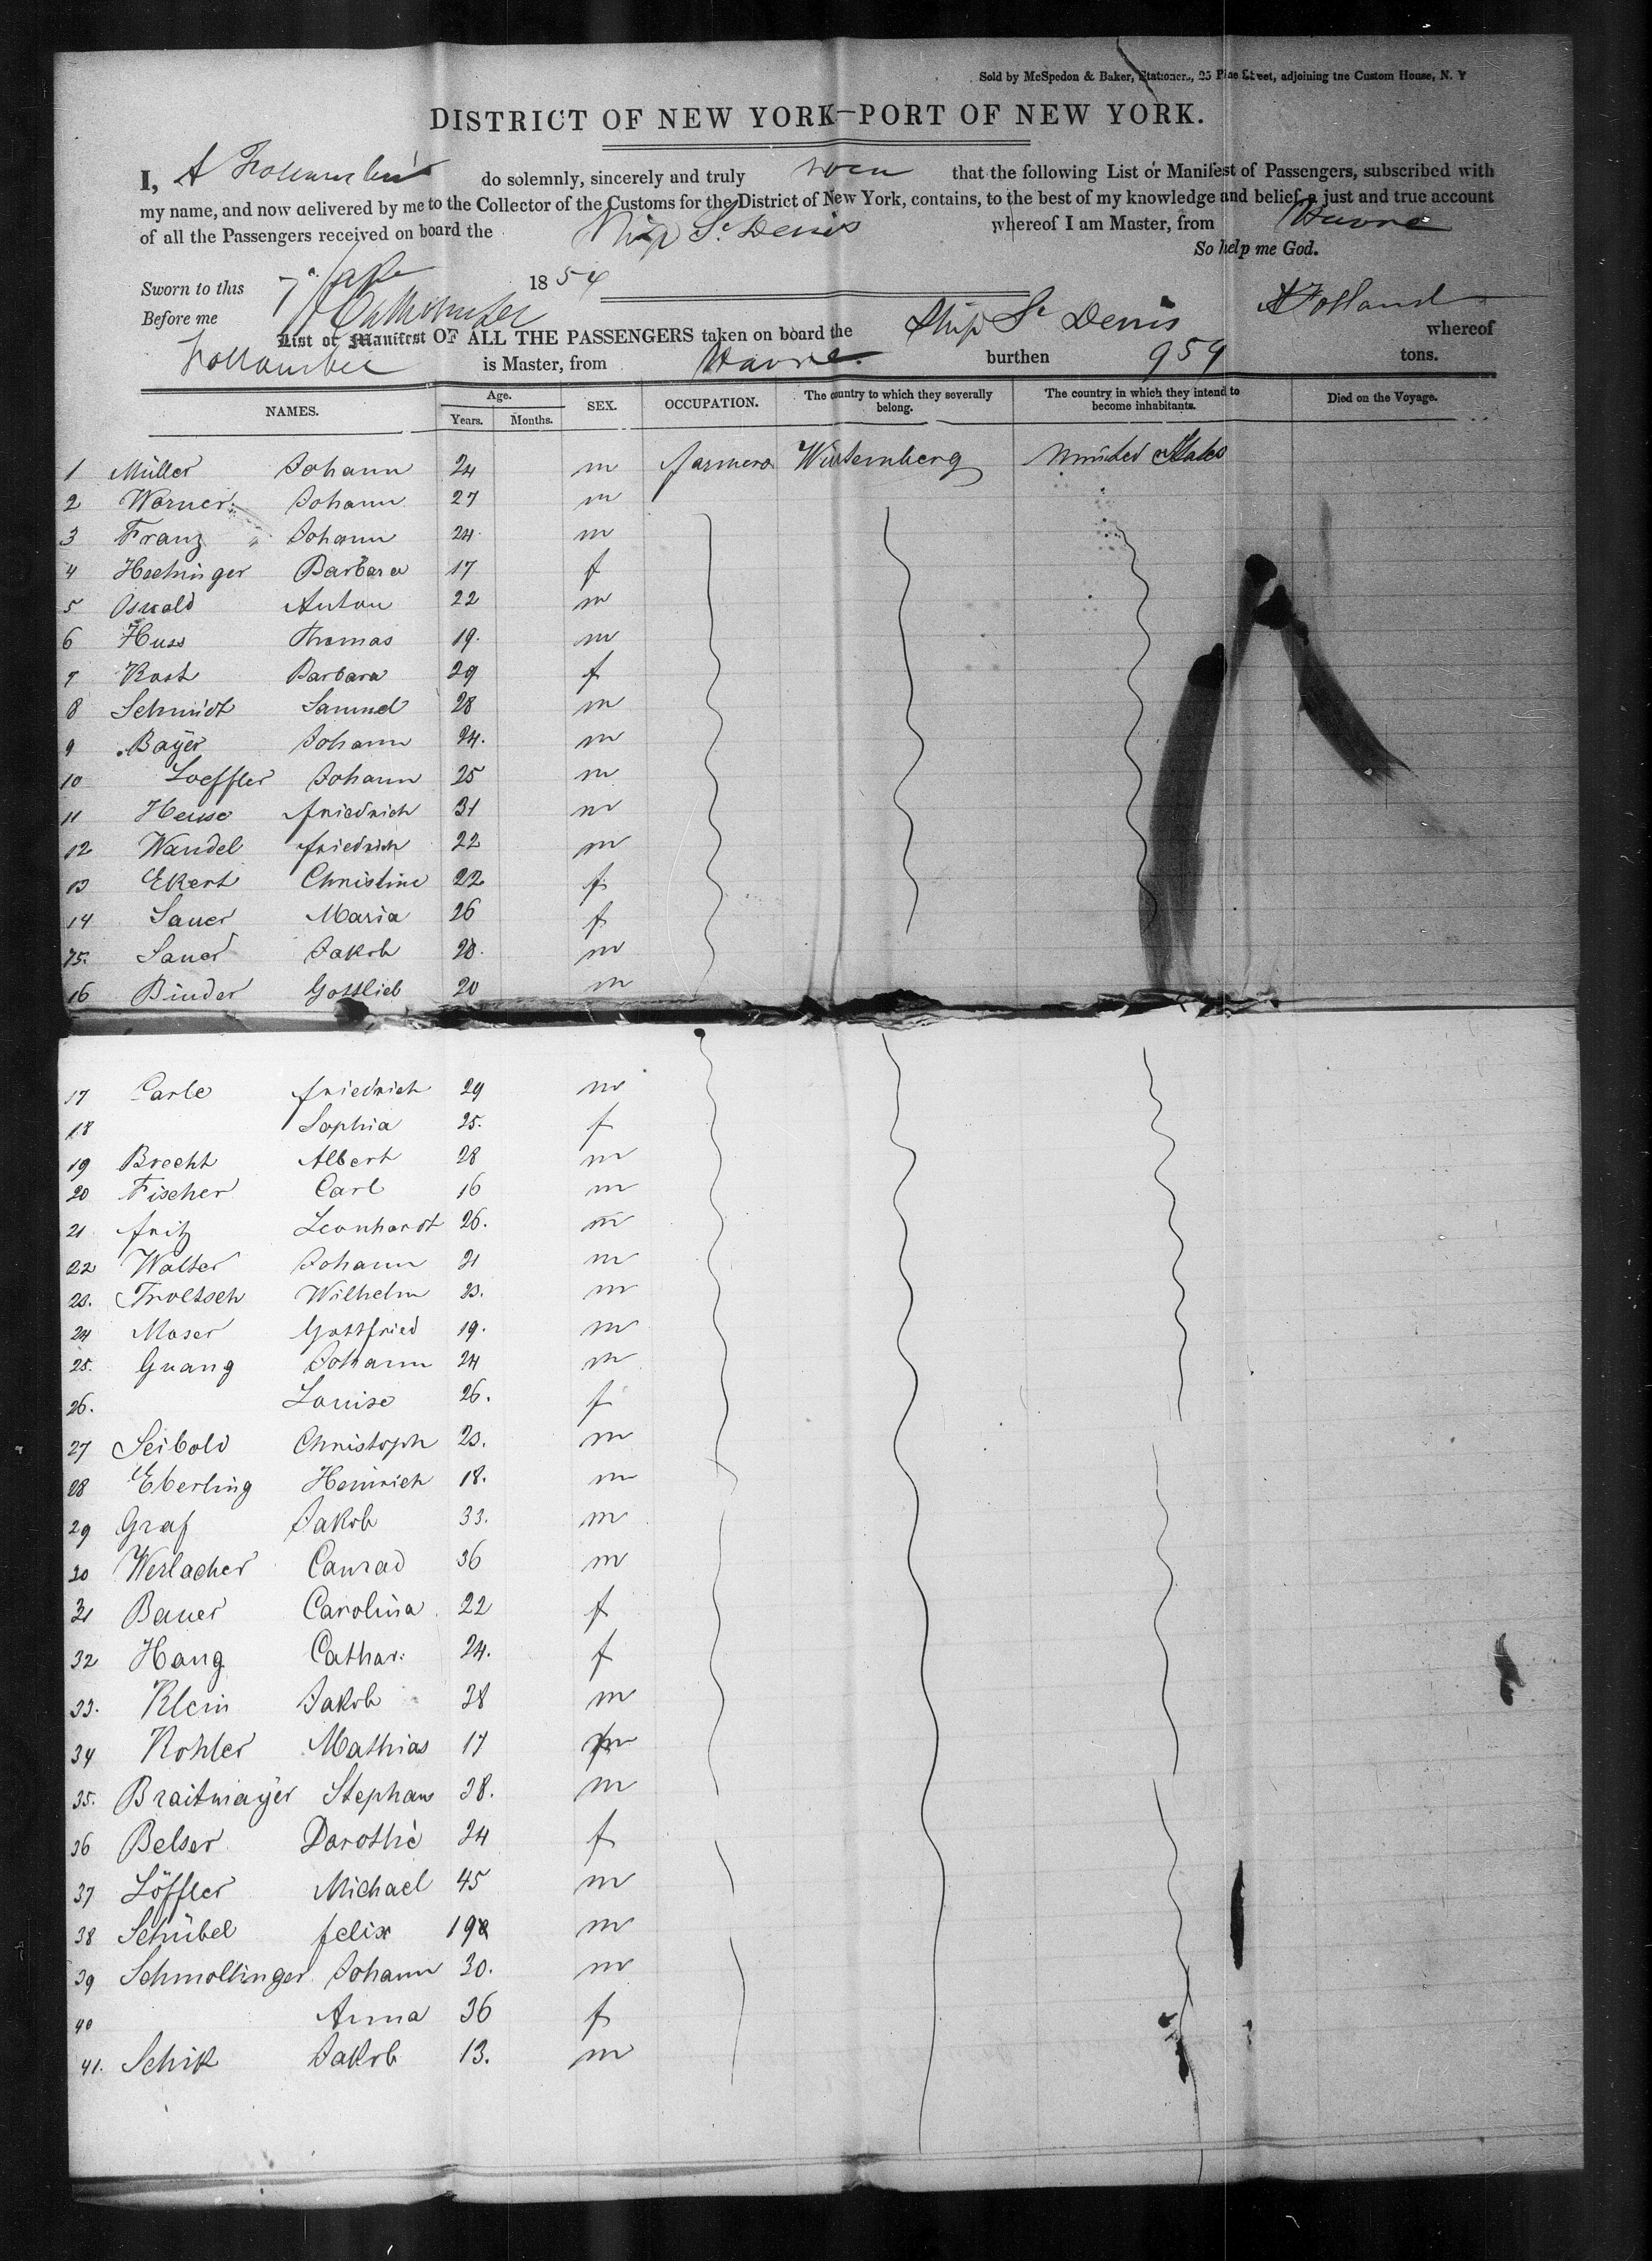 Sold by McSpedon & Baker, Stationers, 25 Pine Street, adjoining the Custom House, N. Y
DISTRICT OF NEW YORK—PORT OF NEW YORK.
I, A do solemnly, sincerely and truly that the following List or Manifest of Passengers, subscribed with
my name, and now delivered by me to the Collector of the Customs for the District of New York, contains, to the best of my knowledge and belief, a just and true account
of all the Passengers received on board the Ship St Denis whereof I am Master, from Havre
So help me God.
Sworn to this 7 1854
Before me
List or Manifest OF ALL THE PASSENGERS taken on board the Ship St Denis whereof
is Master, from Havre. burthen 959 tons.
NAMES. Age. Years. Months. SEX. OCCUPATION. The country to which they severally belong. The country in which they intend to become inhabitants. Died on the Voyage.
1 Müller Johann 24 m farmers Würtemberg United States
2 Werner Johann 27 m
3 Franz Johann 24 m
4 Hechinger Barbara 17 f
5 Oswald Anton 22 m
6 Huss Thomas 19. m
7 Rost Barbara 29 f
8 Schmidt Samuel 28 m
9 Bayer Johann 24. m
10 Loeffler Johann 25 m
11 Heuse friedrich 31 m
12 Wandel friedrich 22 m
13 Ekert Christine 22 f
14 Sauer Maria 26 f
15. Sauer Jakob 20. m
16 Binder Gottlieb 20 m
17 Carle friedrich 29 m
18 Sophia 25. f
19 Brecht Albert 28 m
20 Fischer Carl 16 m
21 fritz Leonhardt 26. m
22 Walter Johann 21 m
23. Troltsch Wilhelm 23. m
24 Moser Gottfried 19. m
25. Gnang Johann 24 m
26. Louise 26. f
27 Seibold Christoph 23. m
28 Eberling Heinrich 18. m
29 Graf Jakob 33. m
30 Werlacher Conrad 36 m
31 Bauer Carolina 22 f
32 Haug Cathar: 24. f
33. Klein Jakob 38 m
34 Kohler Mathias 17 m
35. Braitmayer Stephan 38. m
36 Belser Dorothé 24 f
37 Löffler Michael 45 m
38 Schübel felix 19 m
39 Schmollinger Johann 30. m
40 Anna 36 f
41. Schik Jakob 13. m